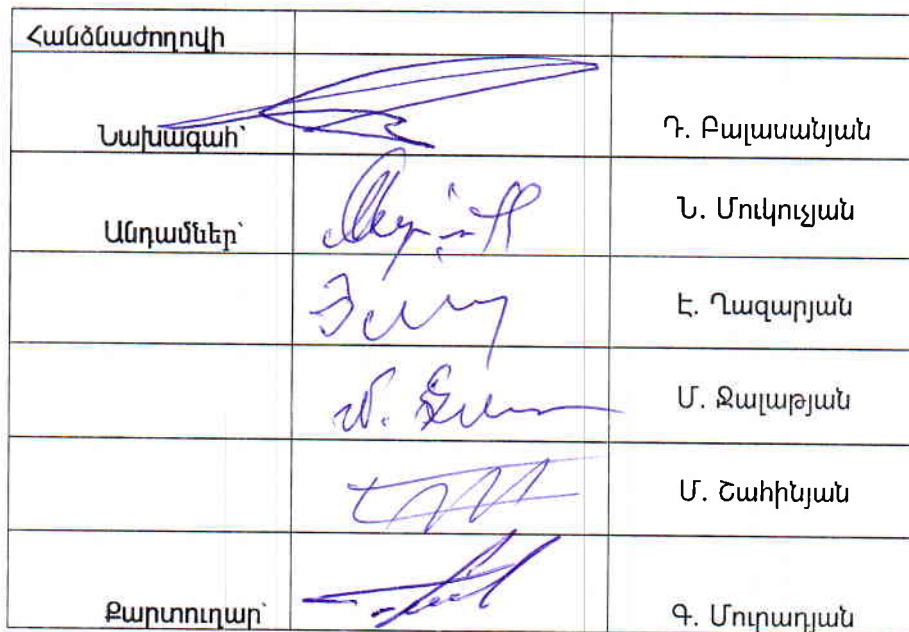 Հանձնաժողովի
Նախագահ՝ Դ. Բալասանյան
Անդամներ՝ Ն. Մուկուչյան
Է. Ղազարյան
Մ. Ջալաթյան
Մ. Շահինյան
Քարտուղար՝ Գ. Մուրադյան